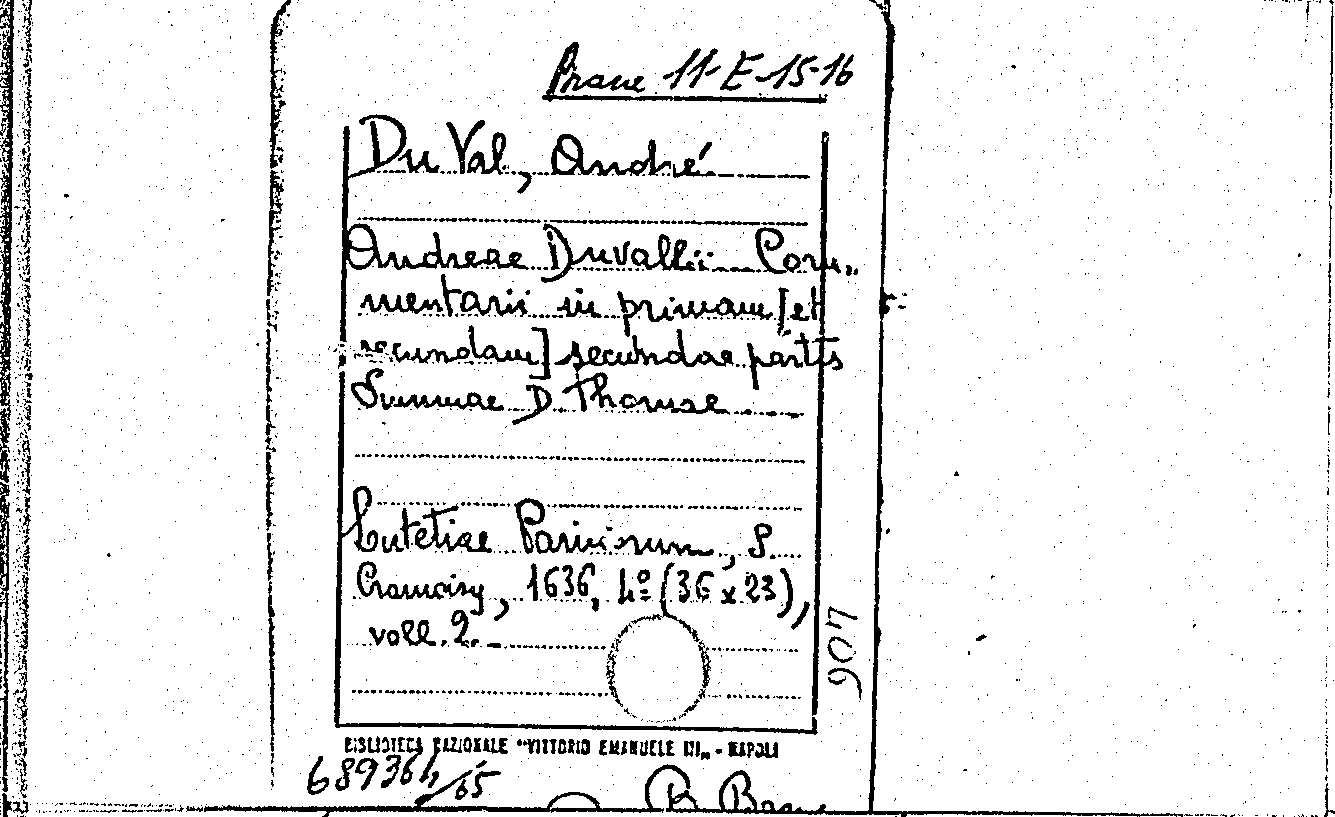 Branc 11-E-15-16
Du Val, André
Andreae Duvallii Com-
mentarii in primam [et
secundam] secundae partis
Summae D. Thomae
Lutetiae Parisiorum, S.
Cramoisy, 1636, 4º (36 x 23),
voll. 2.
406
BIBLIOTECA NAZIONALE "VITTORIO EMANUELE III" - NAPOLI
689364/65
B. Branc